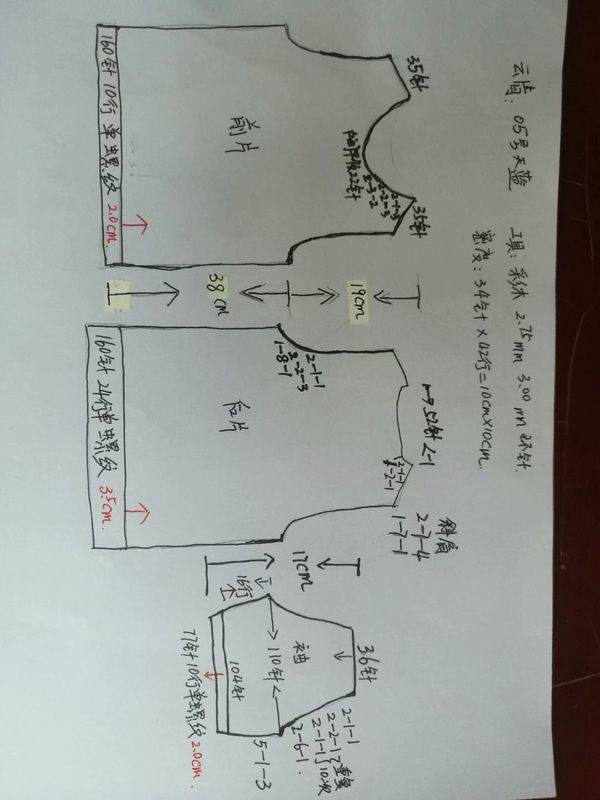 云清: 05号天蓝
工具: 彩休 2.75mm 3.00mm 环针
密度: 34针×42行=10cm×10cm
35针
35针
前片
中间平收22针
2-3-2
2-2-3
2-1-3
160针 10行单螺纹 2.0cm.
19cm
38cm
2-1-1
2-2-3
1-8-1
52针
2-1-1
2-2-1
斜肩
2-7-4
1-7-1
后片
160针 24行单螺纹 3.5cm.
17cm
16行
36针
袖
110针
104针
2-1-1
2-2-1
2-1-1
重复10次
2-6-1.
5-1-3
77针10行单螺纹2.0cm.